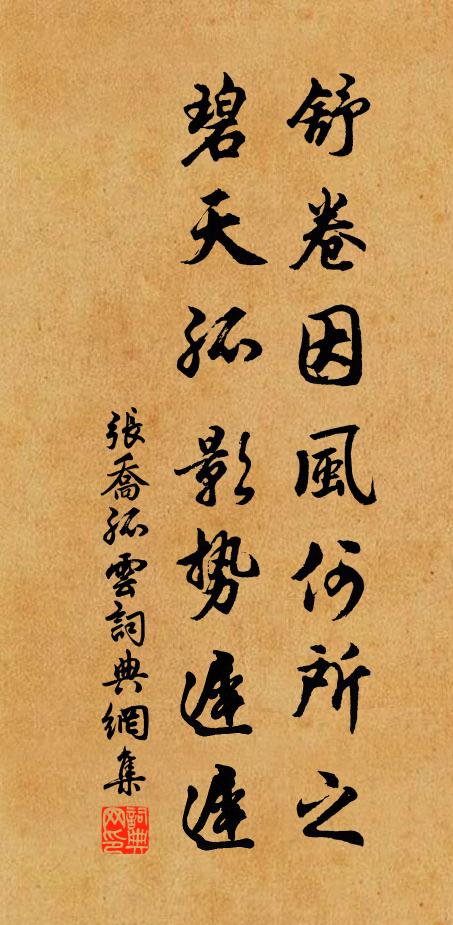 舒卷因風何所之
碧天孤影勢遲遲
張喬孤雲詞典網集
詞典网印